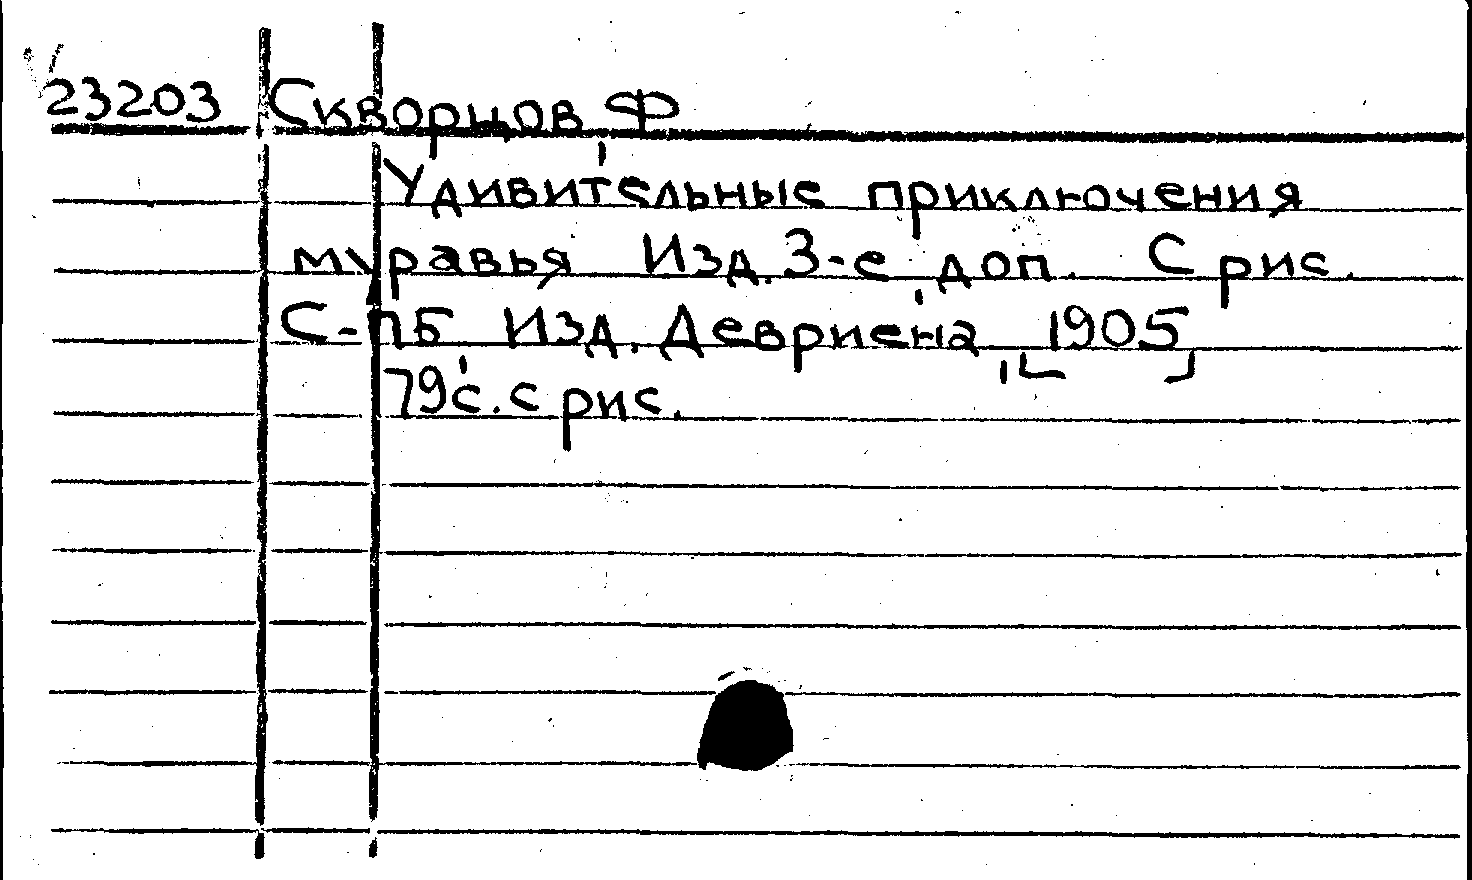 23203 Скворцов, Ф
Удивительные приключения
муравья Изд. 3-е, доп. С рис.
С-ПБ, Изд. Девриена, [1905]
79 с. с рис.